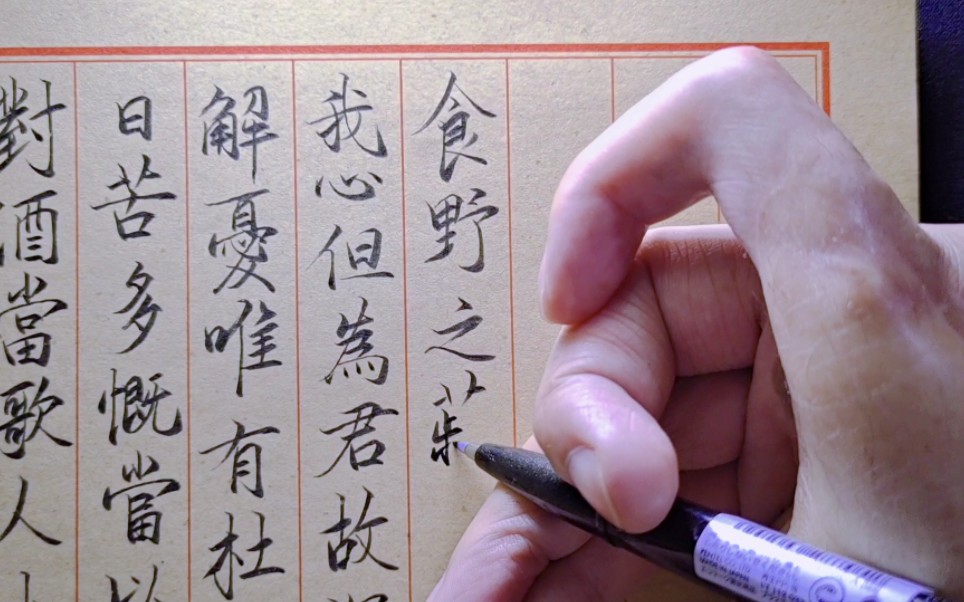 對酒當歌人
日苦多慨當以
解憂唯有杜
我心但為君故
食野之